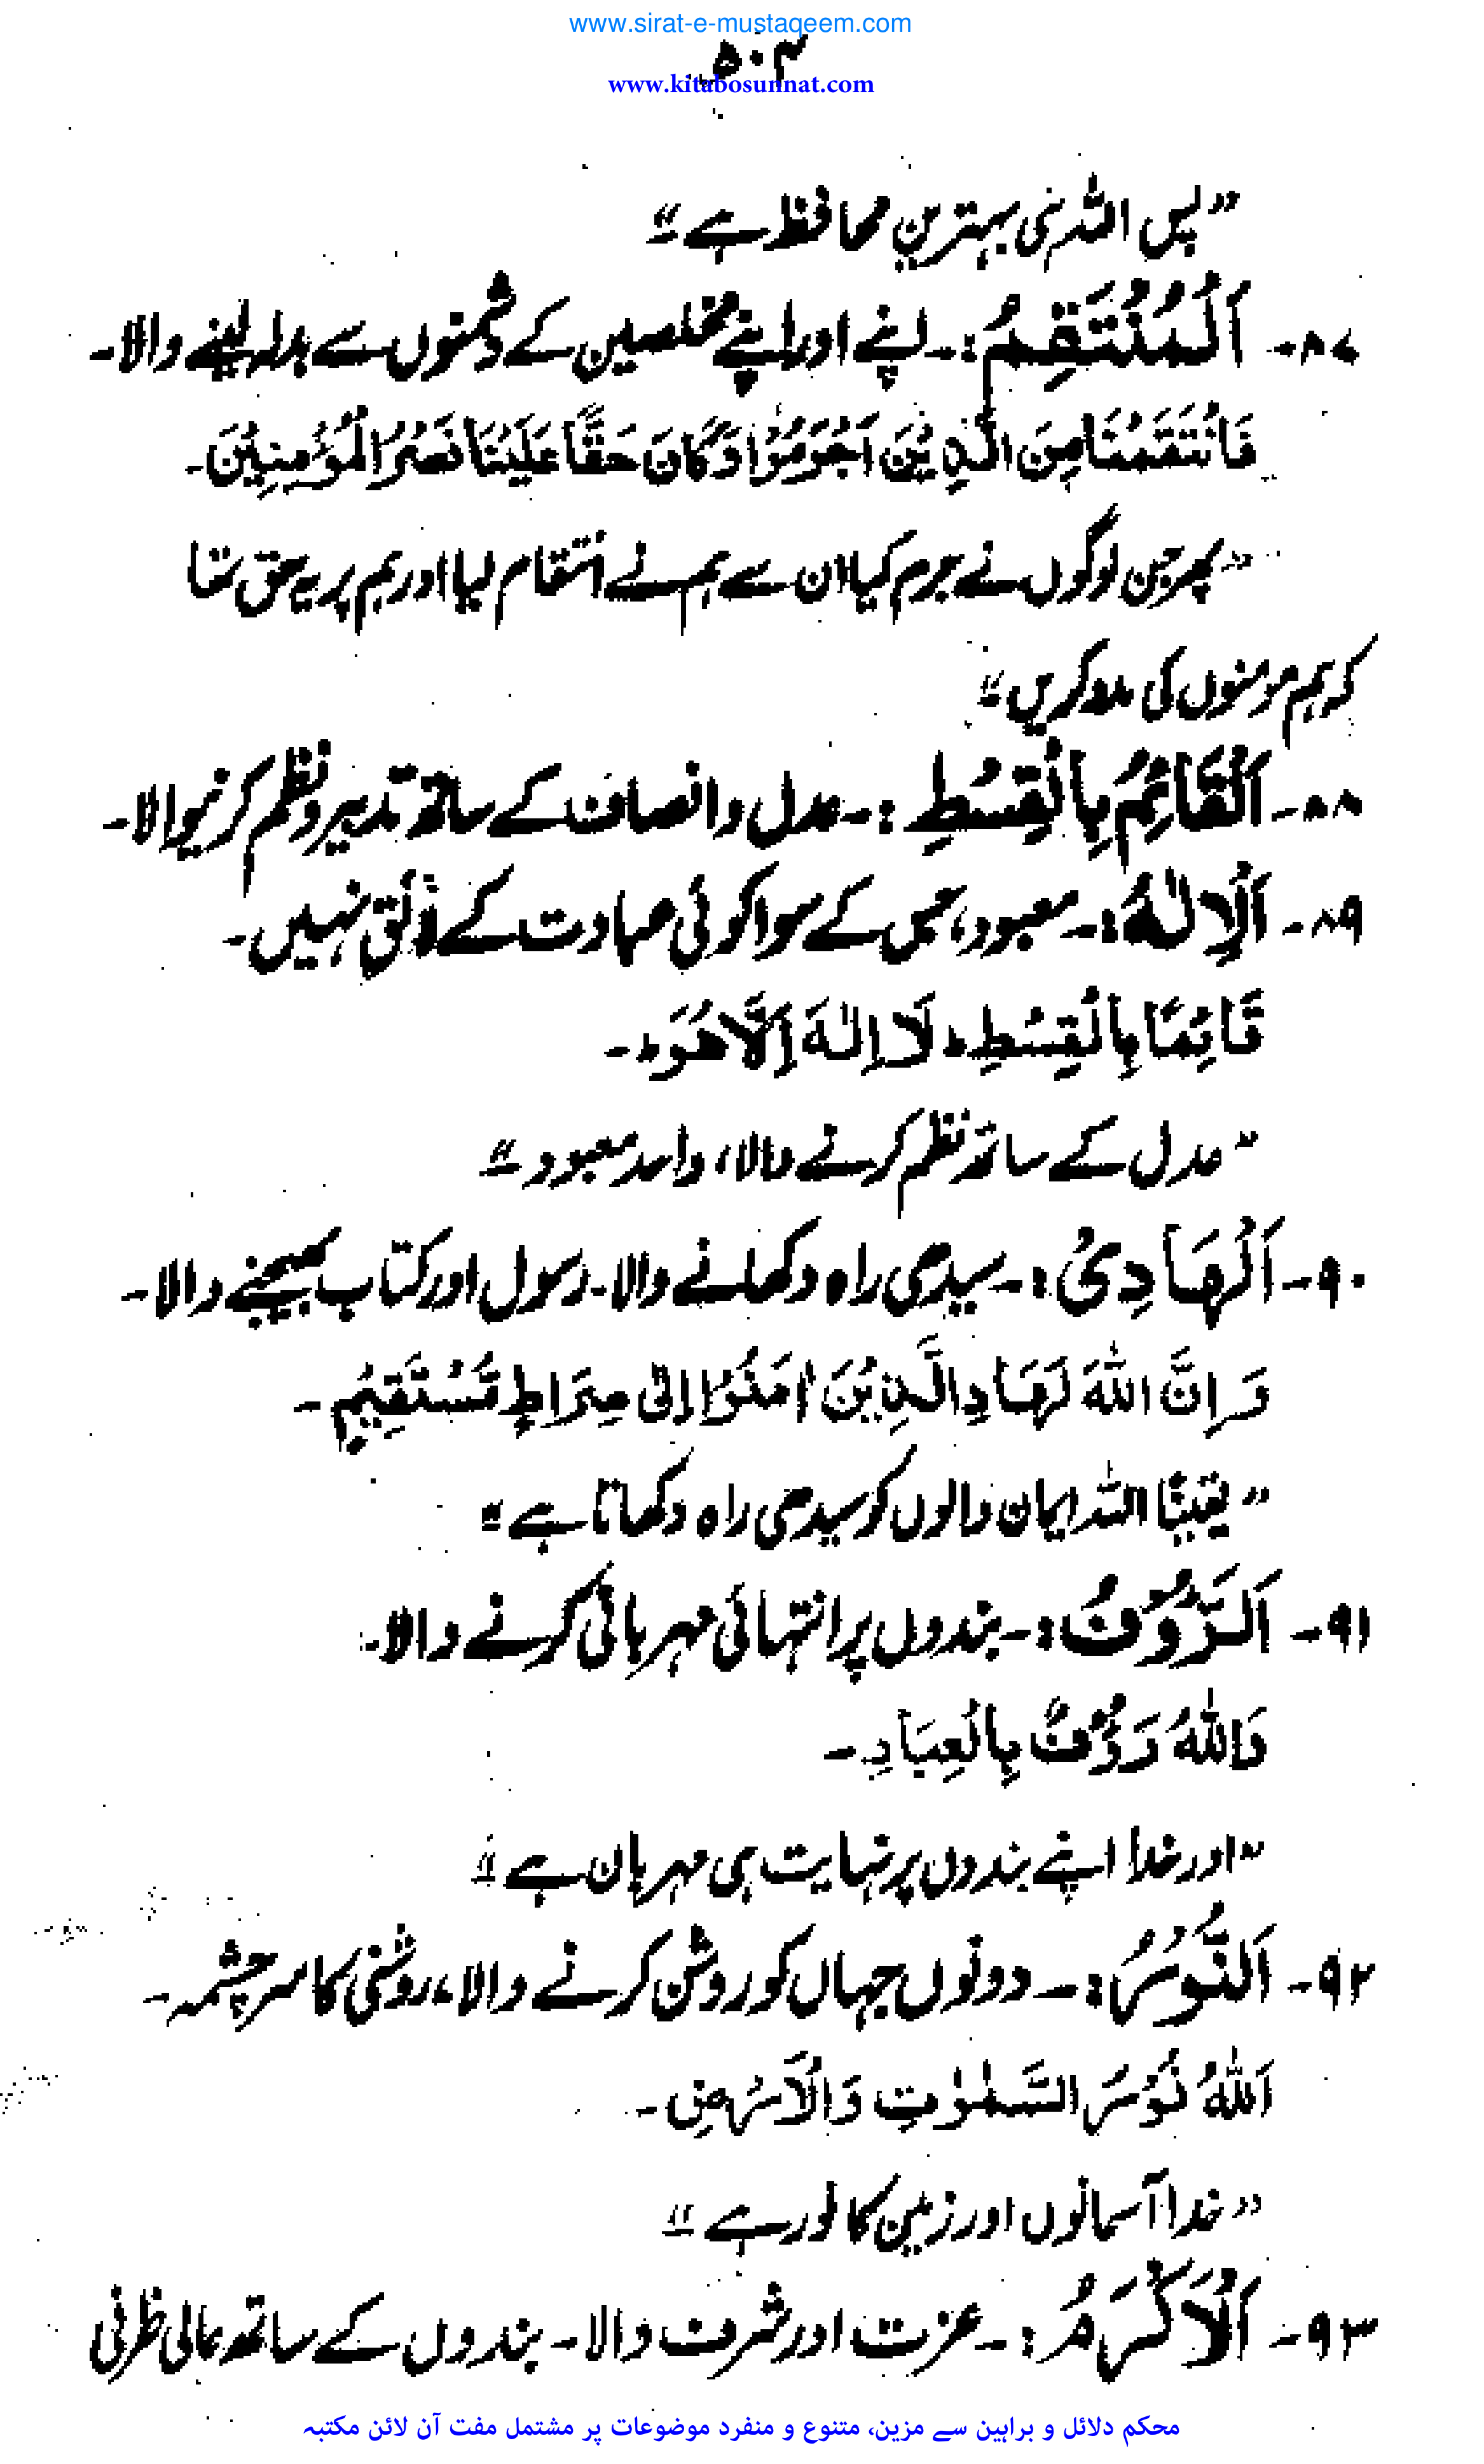 www.sirat-e-mustaqeem.com
۵۰۴
www.kitabosunnat.com
”پس اللہ ہی بہترین محافظ ہے“
۸۷۔ اَلْمُنْتَقِمُ:۔ اپنے اور اپنے مخلصین کے دشمنوں سے بدلہ لینے والا۔
فَانْتَقَمْنَا مِنَ الَّذِیْنَ اَجْرَمُوْا وَکَانَ حَقًّا عَلَیْنَا نَصْرُ الْمُؤْمِنِیْنَ۔
”پھر جن لوگوں نے جرم کیا ان سے ہم نے انتقام لیا اور ہم پر یہ حق تھا
کہ ہم مومنوں کی مدد کریں“
۸۸۔ اَلْقَائِمُ بِالْقِسْطِ:۔ عدل و انصاف کے ساتھ تدبیر و نظم کرنیوالا۔
۸۹۔ اَلْاِلٰہُ:۔ معبود، جس کے سوا کوئی عبادت کے لائق نہیں۔
قَائِمًا بِالْقِسْطِ، لَا اِلٰہَ اِلَّا ھُوَ،۔
”عدل کے ساتھ نظم کرنے والا، واحد معبود“
۹۰۔ اَلْھَادِیُ:۔ سیدھی راہ دکھانے والا۔ رسول اور کتاب بھیجنے والا۔
وَ اِنَّ اللّٰہَ لَھَادِ الَّذِیْنَ اٰمَنُوْا اِلٰی صِرَاطٍ مُّسْتَقِیْمٍ۔
”یقیناً اللہ ایمان والوں کو سیدھی راہ دکھاتا ہے“
۹۱۔ اَلرَّؤُوْفُ:۔ بندوں پر انتہائی مہربانی کرنے والا۔
وَاللّٰہُ رَءُوْفٌ بِالْعِبَادِ۔
”اور خدا اپنے بندوں پر نہایت ہی مہربان ہے“
۹۲۔ اَلنُّوْرُ:۔ دونوں جہاں کو روشن کرنے والا، روشنی کا سرچشمہ۔
اَللّٰہُ نُوْرُ السَّمٰوٰتِ وَالْاَرْضِ۔
”خدا آسمانوں اور زمین کا نور ہے“
۹۳۔ اَلْاَکْرَمُ:۔ عزت اور شرف والا۔ بندوں کے ساتھ عالی ظرفی
محکم دلائل و براہین سے مزین، متنوع و منفرد موضوعات پر مشتمل مفت آن لائن مکتبہ